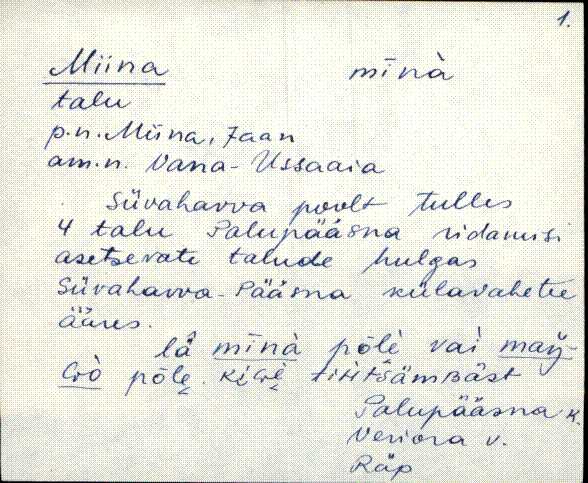 1.
Miina mīnà
talu
p.n. Miina, Jaan
am.n. Vana-Ussaaia
Süvahavva poolt tulles
4 talu Palupääsna ridamisi
asetsevate talude hulgas
Süvahavva-Pääsna külavahetee
ääres.
lǟ mīnà põlè vai
põle
Palupääsna k.
Veriora v.
Räp